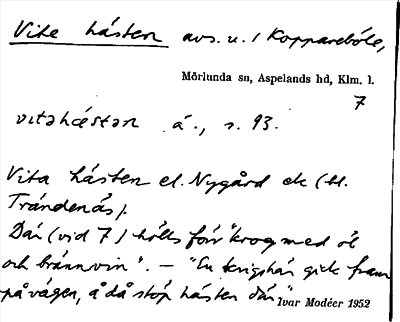 Vite hästen avs. u. 1 Kopparebole,
Mörlunda sn, Aspelands hd, Klm. l.
7
vɪtəhæstən å., s. 93.
Vita hästen el. Nygård ek (bl.
Trändenäs).
Där (vid 7) hölls förr "krog med öl
och brännvin". – "En krigshär gick fram
på vägen, å då stóp hästen där"
Ivar Modéer 1952